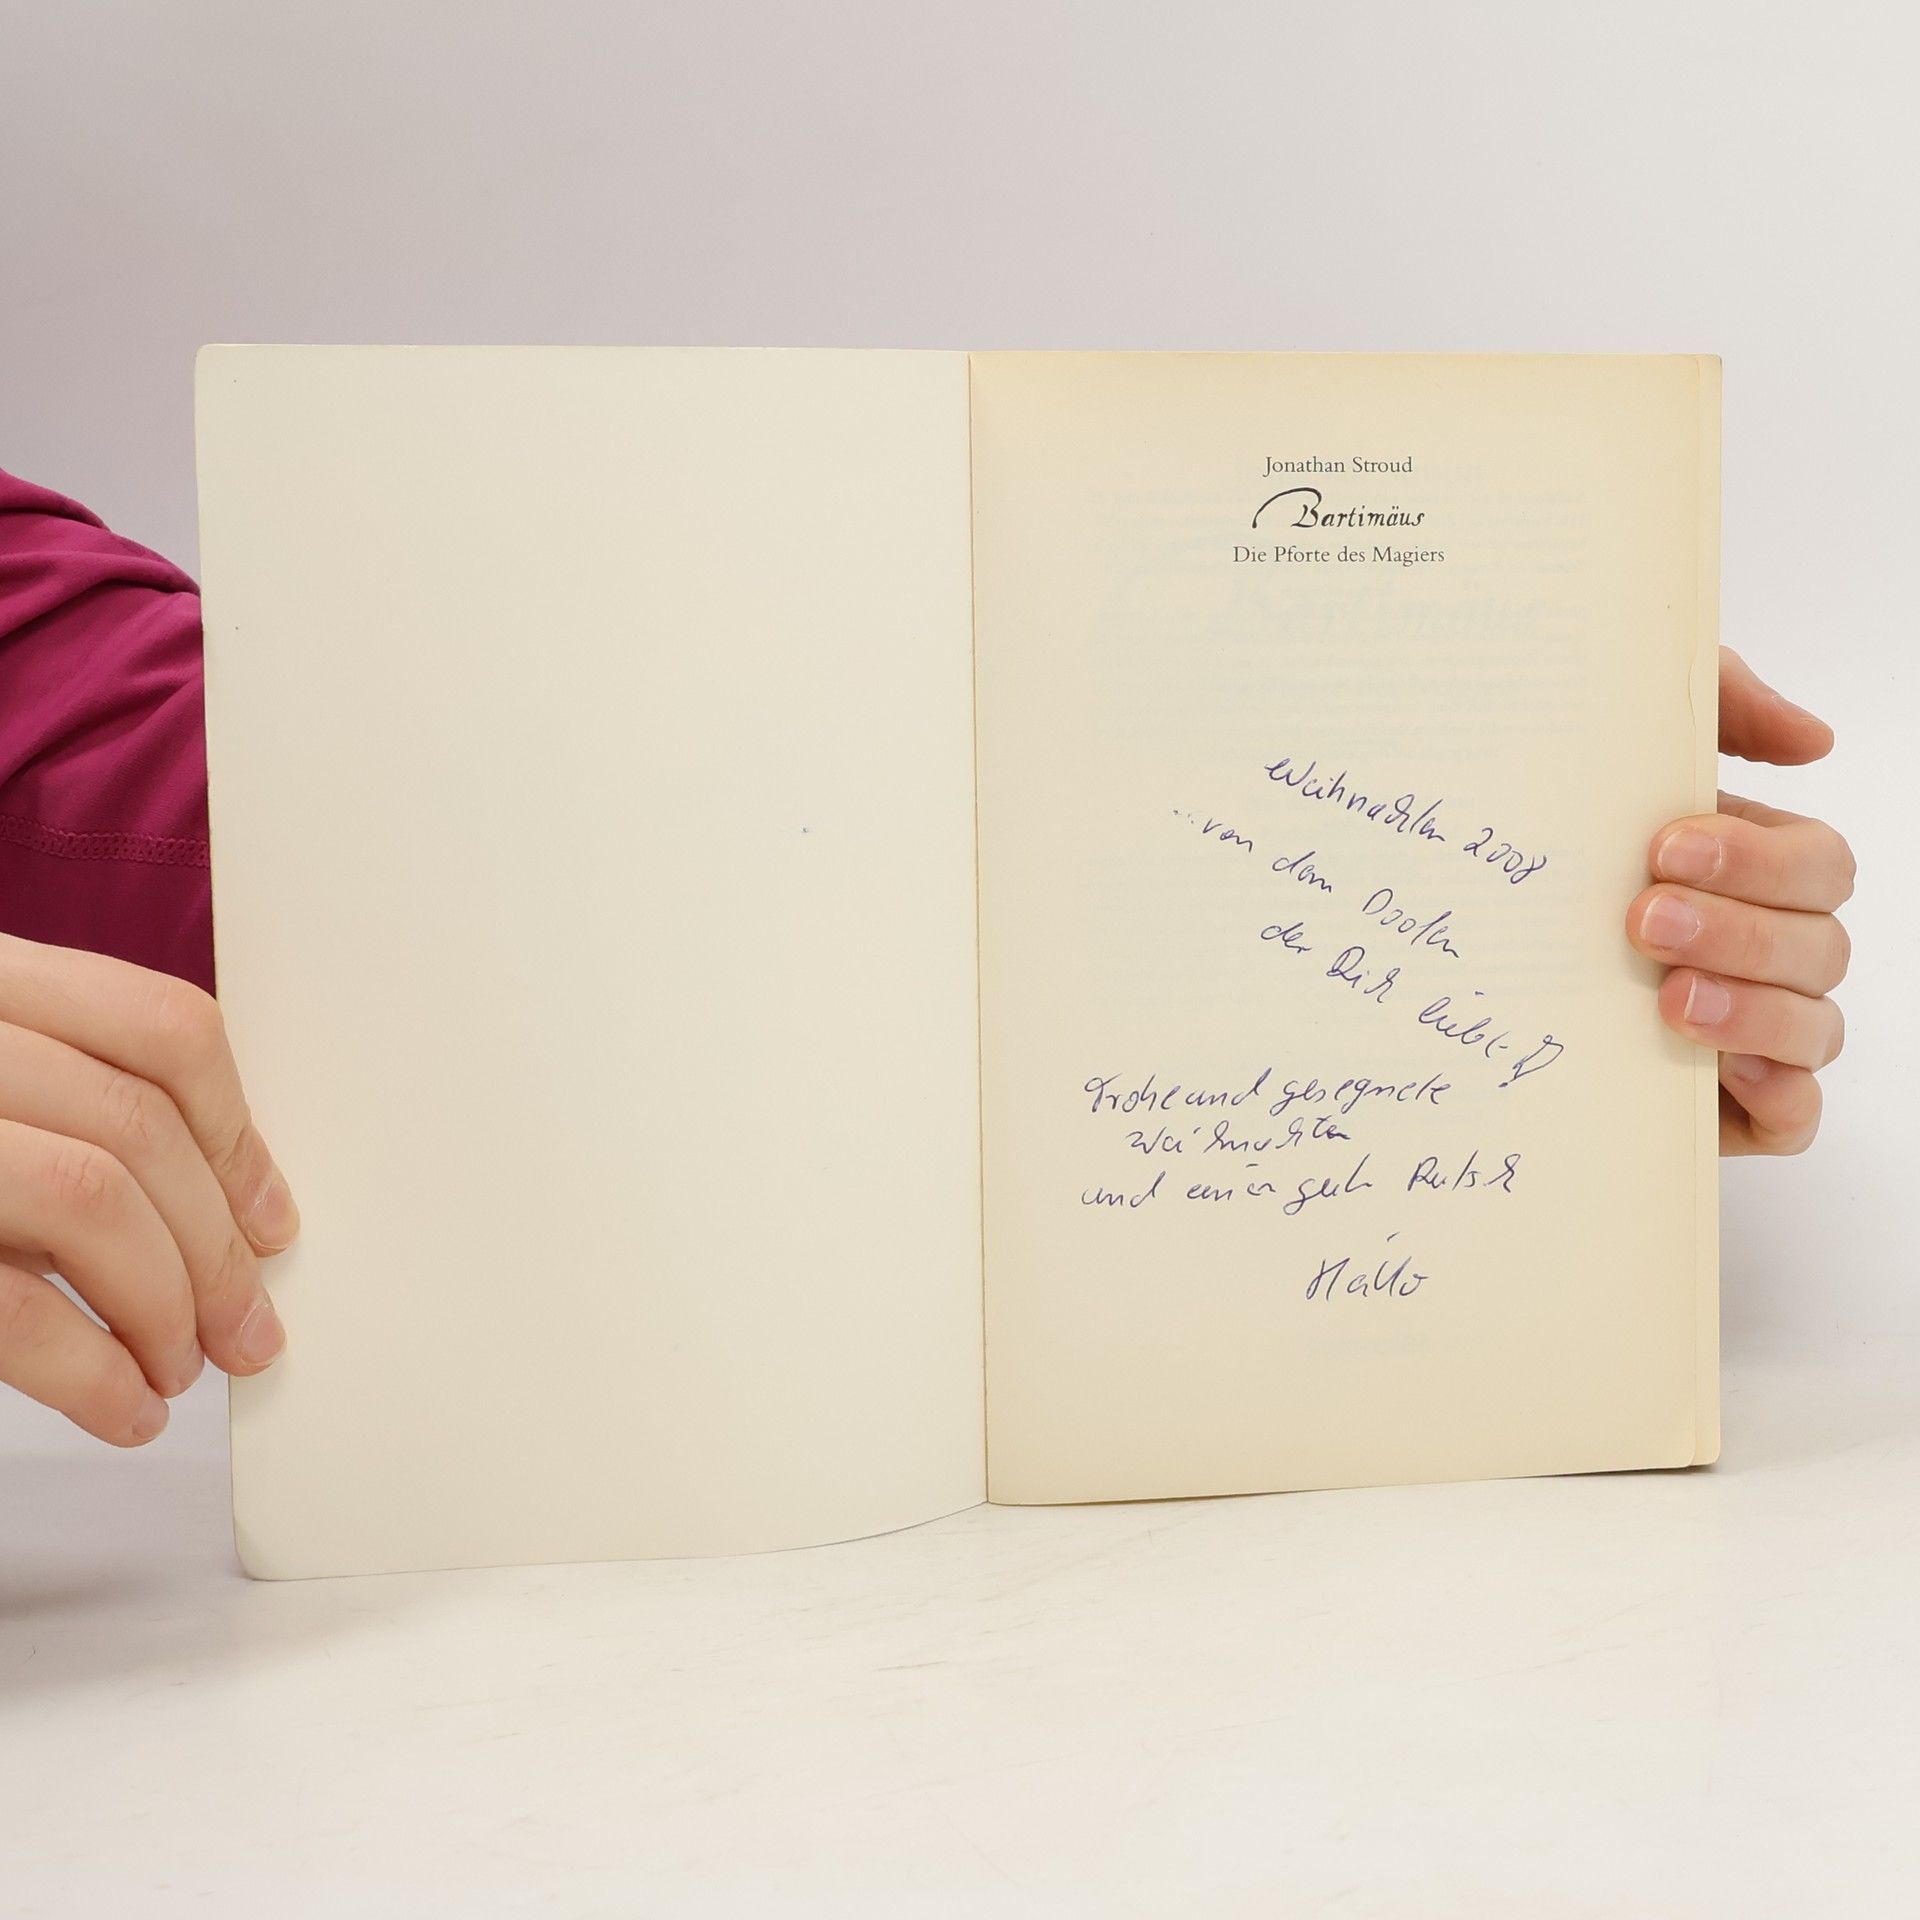 Jonathan Stroud
Bartimäus
Die Pforte des Magiers
Weihnachten 2008
...von dem
der Dich liebt!
Frohe und gesegnete
Weihnachten
und einen guten Rutsch